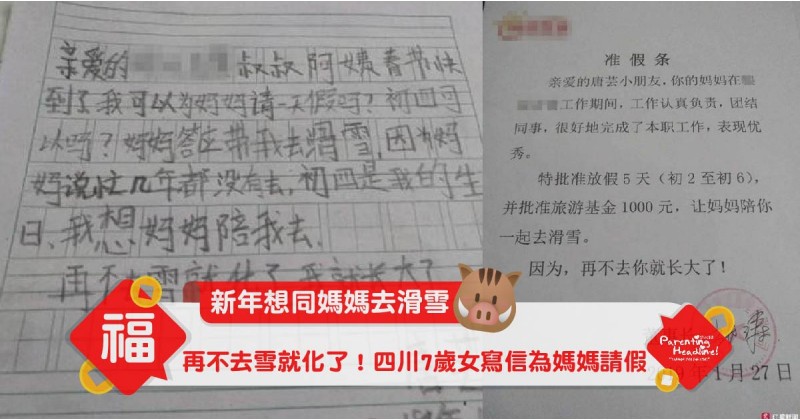 亲爱的 叔叔阿姨春节快
到了我可以为妈妈请一天假吗?初四可
以吗?妈妈答应带我去滑雪,因为妈
妈说忙几年都没有去,初四是我的生
日、我想妈妈陪我去、
再不 雪就化了 我就长大了
准假条
亲爱的唐芸小朋友,你的妈妈在
工作期间,工作认真负责,团结
同事,很好地完成了本职工作,表现忧
秀。
特批准放假 5 天(初 2 至初 6),
并批准旅游基金 1000 元,让妈妈陪你
一起去滑雪。
因为,再不去你就长大了!
1 月 27 日
福
新年想同媽媽去滑雪
再不去雪就化了!四川7歲女寫信為媽媽請假
Parenting
Headline!